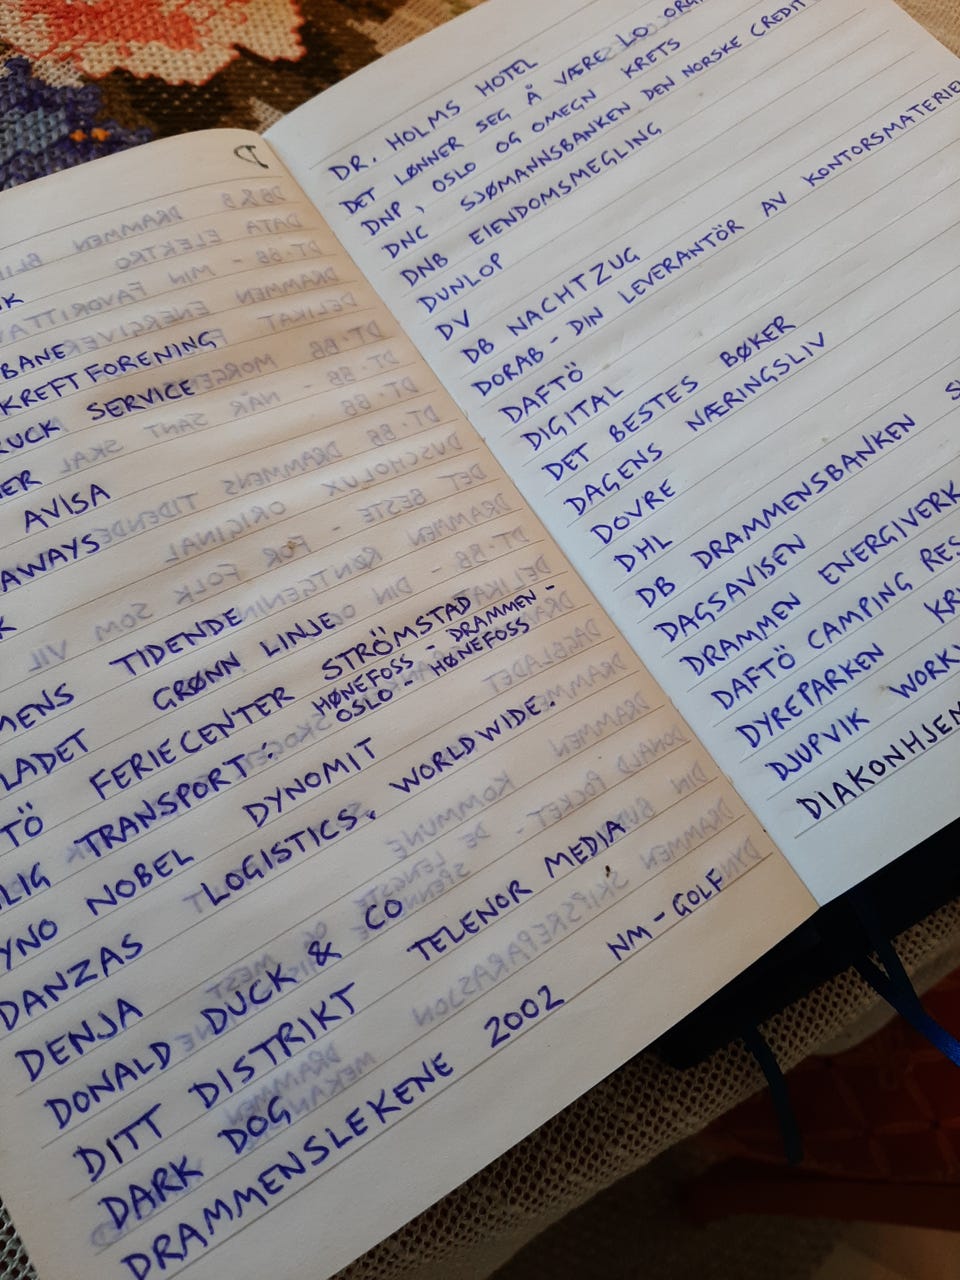 D
K
BANE
KREFTFORENING
RUCK SERVICE
ER
AVISA
AWAYS
K
MENS TIDENDE
LADET GRØNN LINJE
TÖ FERIECENTER STRÖMSTAD
LIG TRANSPORT: HØNEFOSS - DRAMMEN -
OSLO - HØNEFOSS
YNO NOBEL DYNOMIT
DANZAS LOGISTICS. WORLDWIDE.
DENJA
DONALD DUCK & CO
DITT DISTRIKT TELENOR MEDIA
DARK DOG
DRAMMENSLEKENE 2002 NM-GOLF
DR. HOLMS HOTEL
DET LØNNER SEG Å VÆRE LO ORG
DNP, OSLO OG OMEGN KRETS
DNC SJØMANNSBANKEN DEN NORSKE CREDIT
DNB EIENDOMSMEGLING
DUNLOP
DV
DB NACHTZUG
DORAB - DIN LEVERANTÖR AV KONTORSMATERIEL
DAFTÖ
DIGITAL
DET BESTES BØKER
DAGENS NÆRINGSLIV
DOVRE
DHL
DB DRAMMENSBANKEN S
DAGSAVISEN
DRAMMEN ENERGIVERK
DAFTÖ CAMPING RES
DYREPARKEN KRI
DJUPVIK WORK
DIAKONHJEM